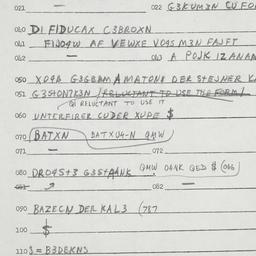 021 — 022 G3KUM3N CUFO
040 DI FIDUCAX C3BROXN
041 FINO4W AF VEWXE VO4S M3N FAJFT
042 — 043 A POJK IZANAM
050 XO4A G3GBAM AMATONE DER STEJNER K
051 G3SHONTK3N / RELUCTANT TO USE THE FORM /
@ RELUCTANT TO USE IT
060 UNTERFIBER CUDER XUPE $
070 (BATXN) (DATXU4-N QMW)
071 — 072
080 DRO4S+3 G3S+AANK QMW OANK QED $ (046)
081 082 —
090 BAZECN DER KAL3 (787
100 $
110 $ = B3DEKNS